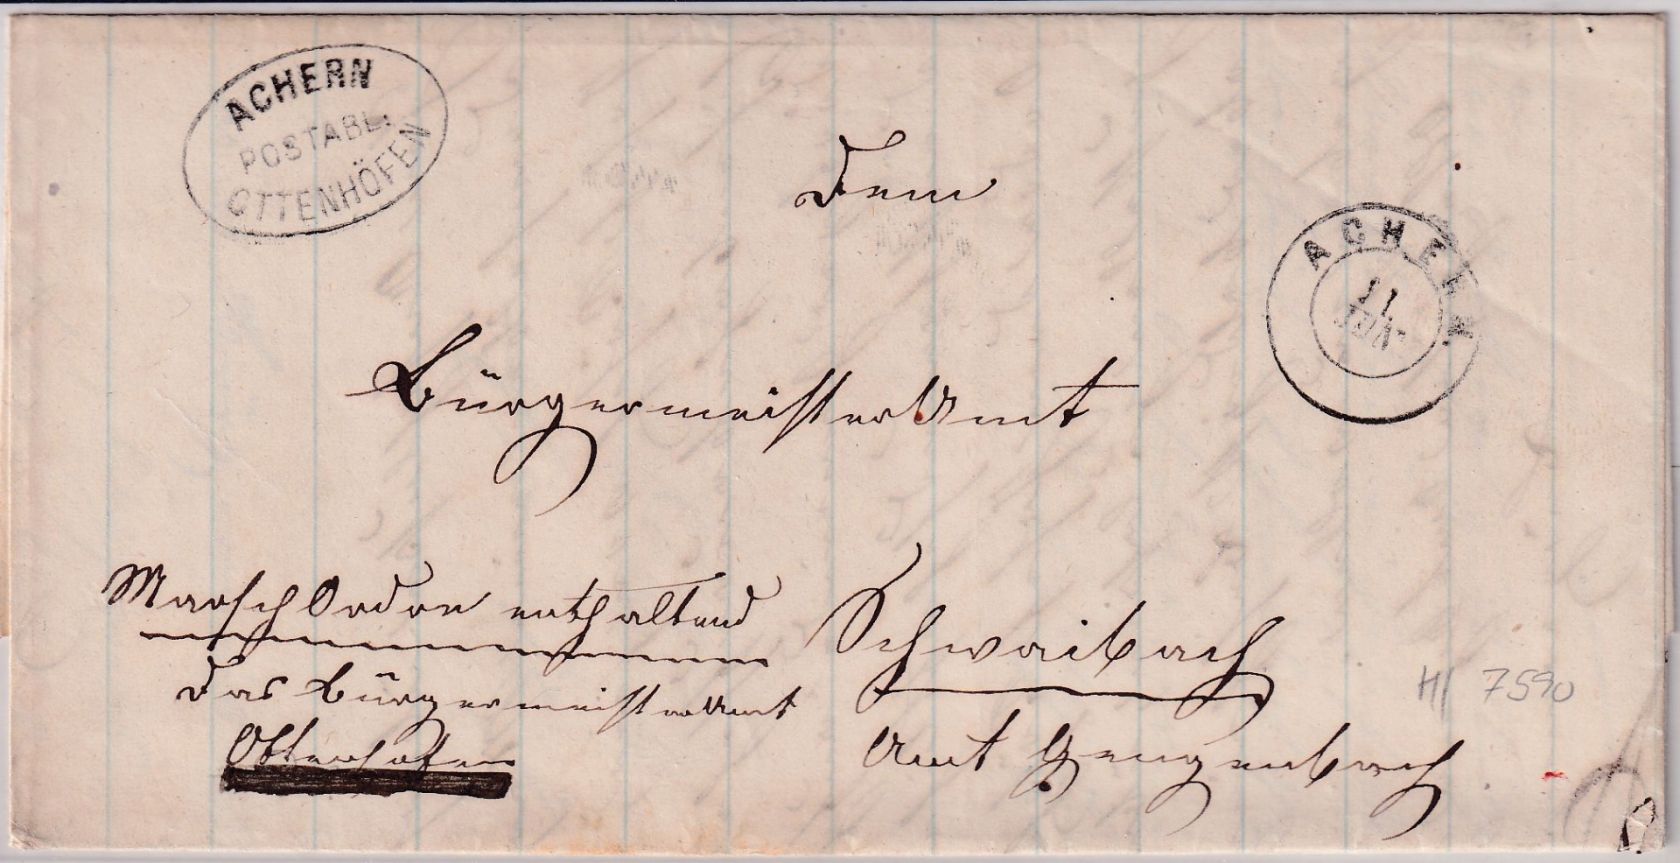 ACHERN
POSTABL.
OTTENHÖFEN
Dem
ACHERN
11
JUN
BürgermeisterAmt
MarschOrdre enthaltend
Schwaibach
Das Bürgermeisteramt
Ottenhöfen
Amt Gengenbach
H/ 7590